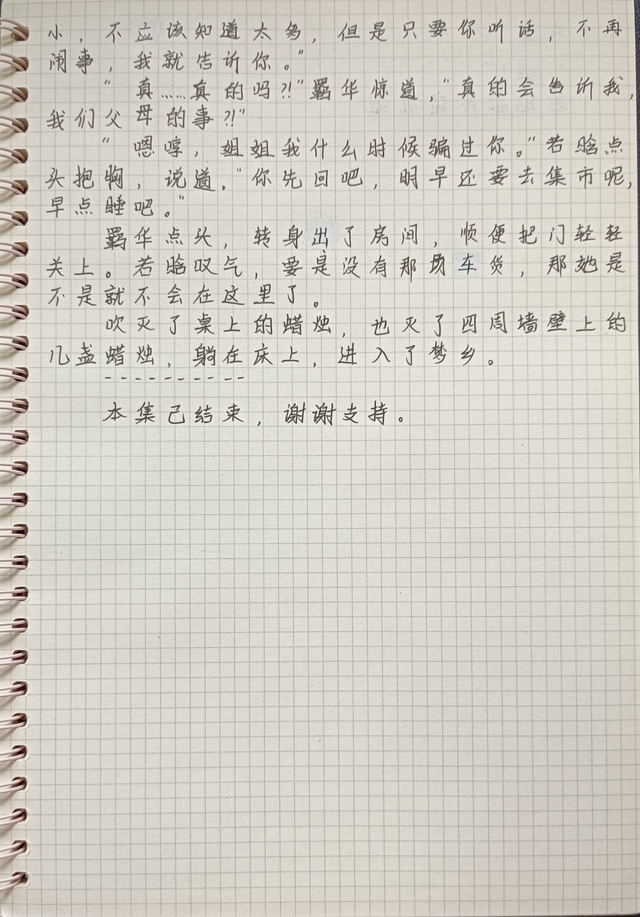 小，不应该知道太多，但是只要你听话，不再
闹事，我就告诉你。”
“真……真的吗?!”羁华惊道，“真的会告诉我，
我们父母的事?!”
“嗯哼，姐姐我什么时候骗过你。”若晗点
头抱胸，说道，“你先回吧，明早还要去集市呢，
早点睡吧。”
羁华点头，转身出了房间，顺便把门轻轻
关上。若晗叹气，要是没有那场车货，那她是
不是就不会在这里了。
吹灭了桌上的蜡烛，也灭了四周墙壁上的
几盏蜡烛，躺在床上，进入了梦乡。
本集已结束，谢谢支持。